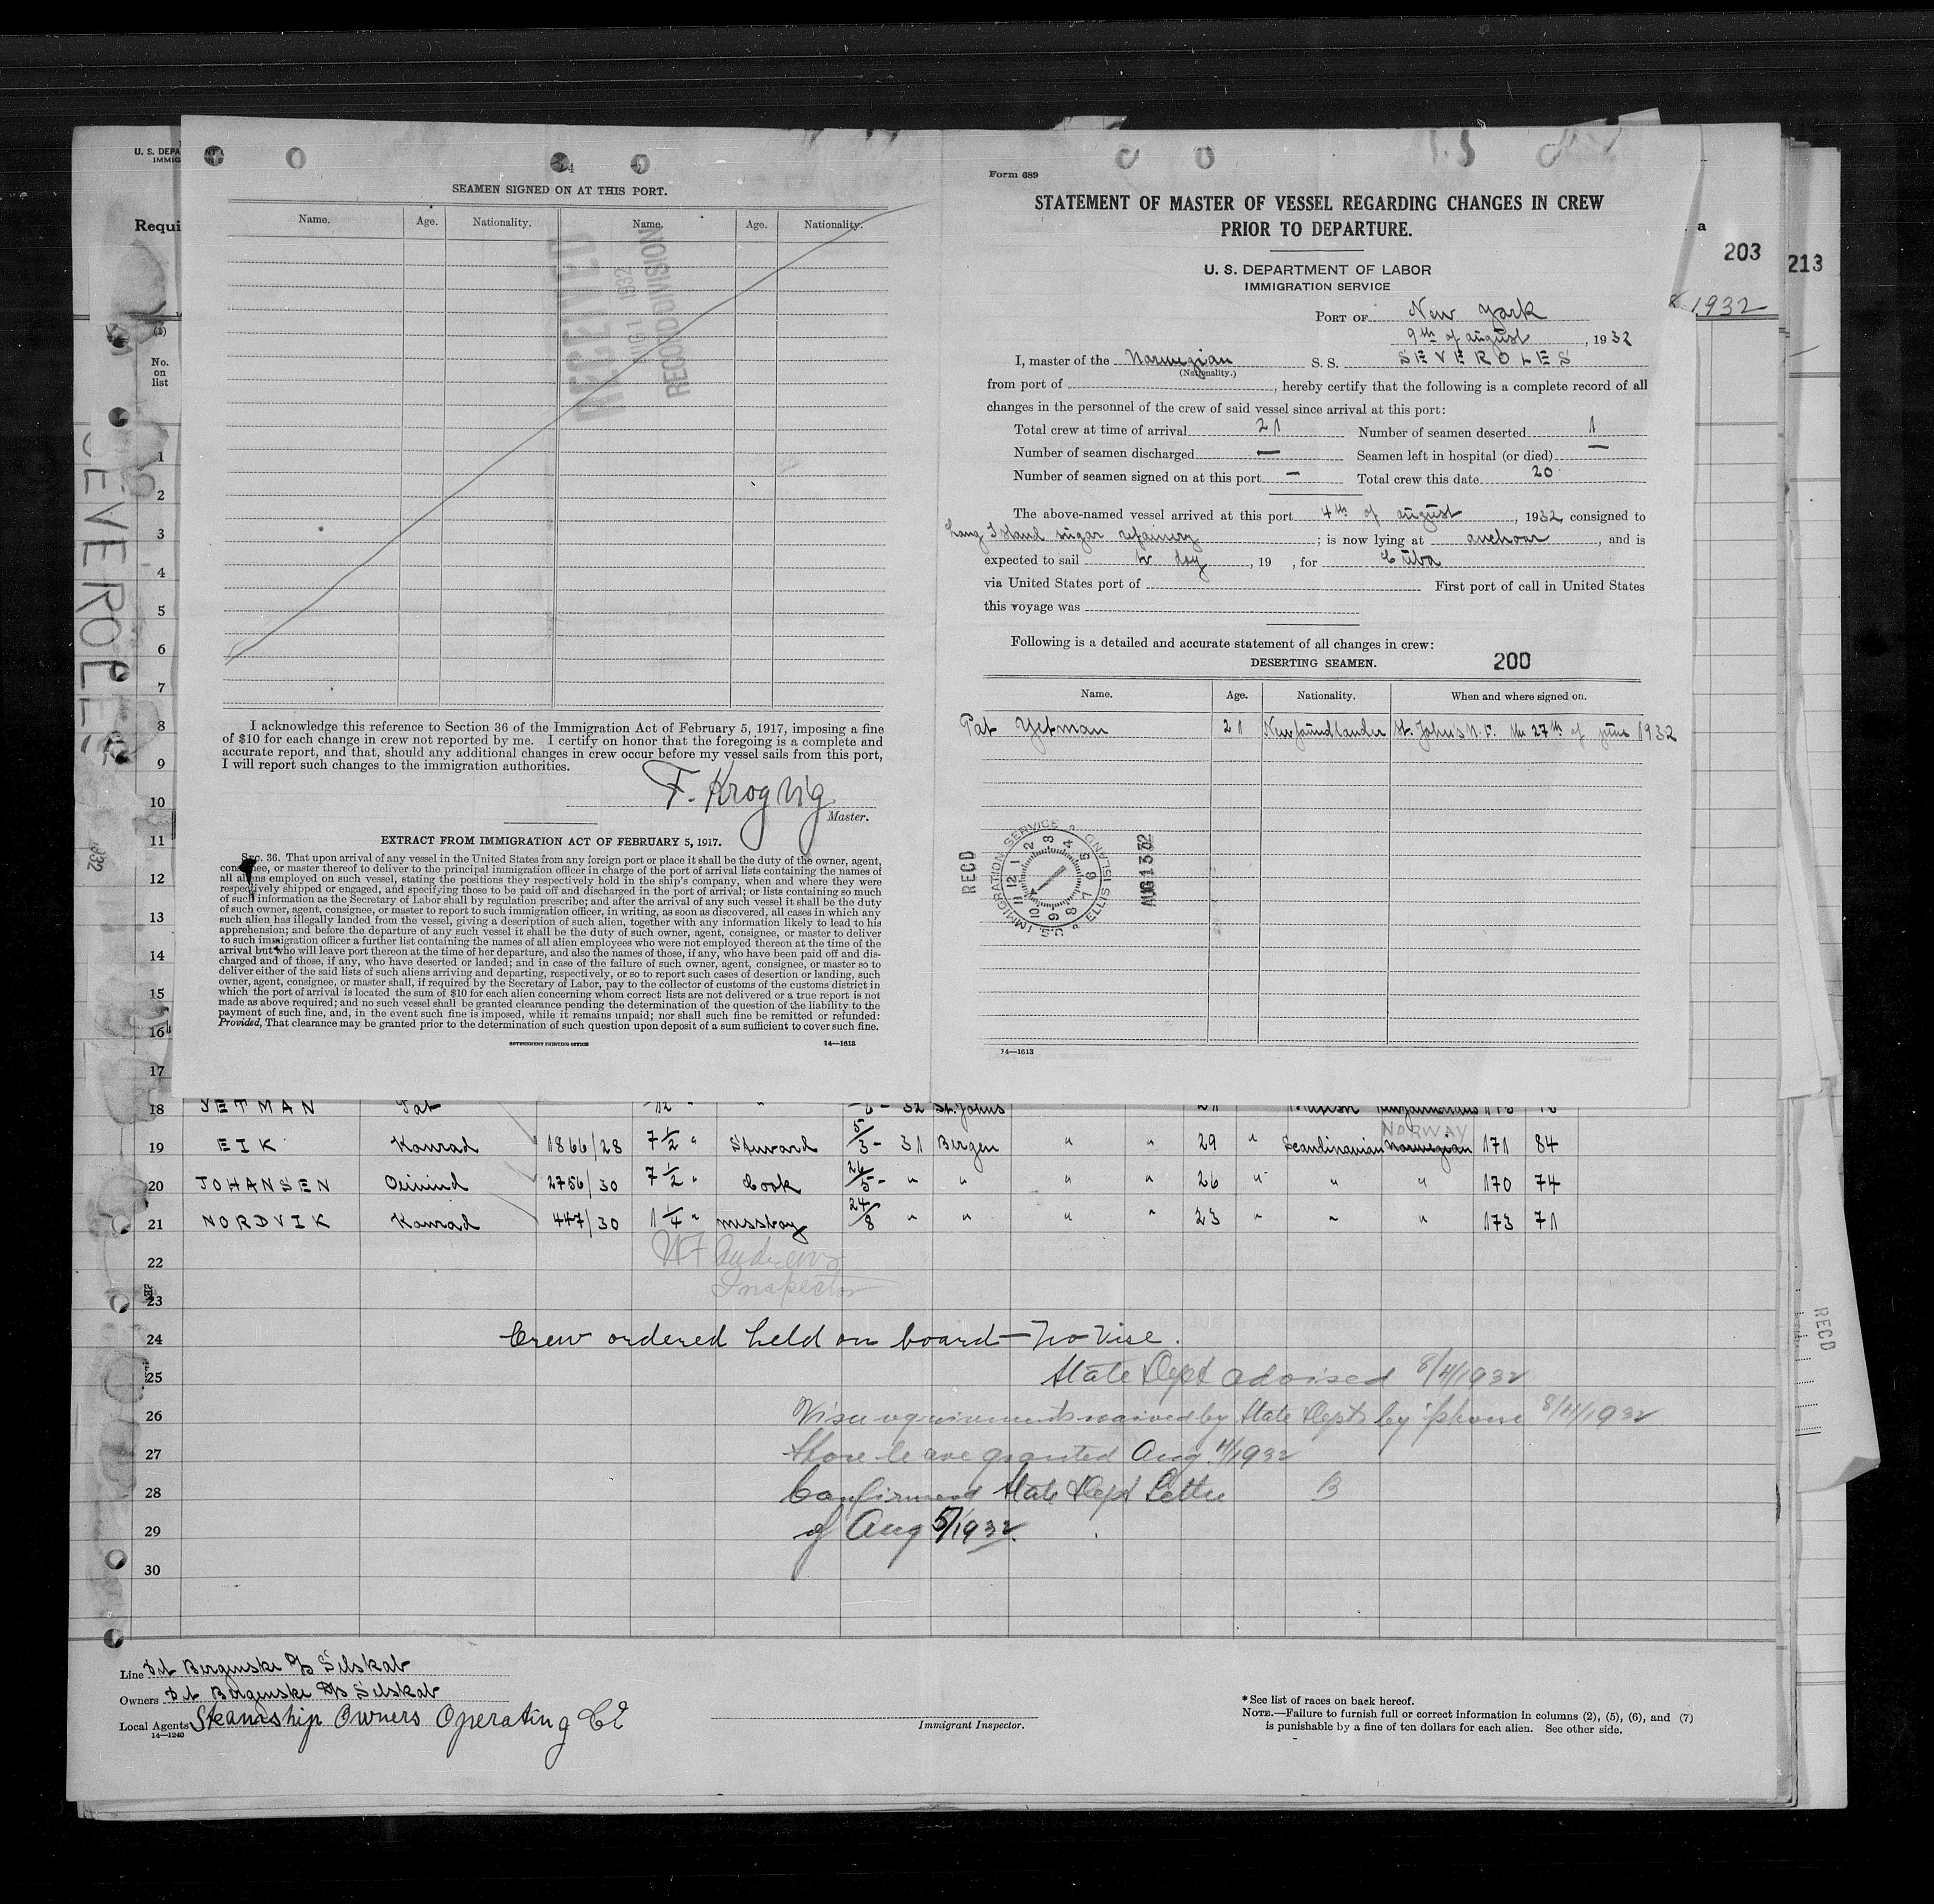 U. S. DEPA
IMMIG
Requi
(1)
No.
on
list
SEVEROLES
SEAMEN SIGNED ON AT THIS PORT.
Name. Age. Nationality. Name. Age. Nationality.
RECEIVED
AUG 1 1932
RECORD DIVISION
I acknowledge this reference to Section 36 of the Immigration Act of February 5, 1917, imposing a fine
of $10 for each change in crew not reported by me. I certify on honor that the foregoing is a complete and
accurate report, and that, should any additional changes in crew occur before my vessel sails from this port,
I will report such changes to the immigration authorities.
F. Krogvig
Master.
EXTRACT FROM IMMIGRATION ACT OF FEBRUARY 5, 1917.
Sec. 36. That upon arrival of any vessel in the United States from any foreign port or place it shall be the duty of the owner, agent,
consignee, or master thereof to deliver to the principal immigration officer in charge of the port of arrival lists containing the names of
all aliens employed on such vessel, stating the positions they respectively hold in the ship's company, when and where they were
respectively shipped or engaged, and specifying those to be paid off and discharged in the port of arrival; or lists containing so much
of such information as the Secretary of Labor shall by regulation prescribe; and after the arrival of any such vessel it shall be the duty
of such owner, agent, consignee, or master to report to such immigration officer, in writing, as soon as discovered, all cases in which any
such alien has illegally landed from the vessel, giving a description of such alien, together with any information likely to lead to his
apprehension; and before the departure of any such vessel it shall be the duty of such owner, agent, consignee, or master to deliver
to such immigration officer a further list containing the names of all alien employees who were not employed thereon at the time of the
arrival but who will leave port thereon at the time of her departure, and also the names of those, if any, who have been paid off and dis-
charged and of those, if any, who have deserted or landed; and in case of the failure of such owner, agent, consignee, or master so to
deliver either of the said lists of such aliens arriving and departing, respectively, or so to report such cases of desertion or landing, such
owner, agent, consignee, or master shall, if required by the Secretary of Labor, pay to the collector of customs of the customs district in
which the port of arrival is located the sum of $10 for each alien concerning whom correct lists are not delivered or a true report is not
made as above required; and no such vessel shall be granted clearance pending the determination of the question of the liability to the
payment of such fine, and, in the event such fine is imposed, while it remains unpaid; nor shall such fine be remitted or refunded:
Provided, That clearance may be granted prior to the determination of such question upon deposit of a sum sufficient to cover such fine.
GOVERNMENT PRINTING OFFICE 14—1613
Form 689
STATEMENT OF MASTER OF VESSEL REGARDING CHANGES IN CREW
PRIOR TO DEPARTURE.
U. S. DEPARTMENT OF LABOR
IMMIGRATION SERVICE
PORT OF New York
9th of august, 1932
I, master of the Norwegian S. S. SEVEROLES
(Nationality.)
from port of , hereby certify that the following is a complete record of all
changes in the personnel of the crew of said vessel since arrival at this port:
Total crew at time of arrival 21 Number of seamen deserted 1
Number of seamen discharged — Seamen left in hospital (or died) —
Number of seamen signed on at this port — Total crew this date 20
The above-named vessel arrived at this port 4th of august, 1932, consigned to
Long Island sugar refinery ; is now lying at anchoar, and is
expected to sail to day, 19 , for Cuba
via United States port of First port of call in United States
this voyage was
Following is a detailed and accurate statement of all changes in crew:
DESERTING SEAMEN. 200
Name. Age. Nationality. When and where signed on.
Pat Yetman 21 Newfoundlander St. Johns N.F. the 27th of june 1932
RECD
U.S. IMMIGRATION SERVICE ELLIS ISLAND
AUG 13 32
14—1613
a
203
213
1932
1
2
3
4
5
6
7
8
9
10
11
12
13
14
15
16
17
18 YETMAN Pat 32 St. Johns 21
19 EIK Konrad 1866/28 7 1/2 " Stuvard 5/3 - 31 Bergen " " 29 " Scandinavian Norwegian NORWAY 171 84
20 JOHANSEN Oivind 2756/30 7 1/2 " Cook 26/5 - " " " " 26 " " " 170 74
21 NORDVIK Konrad 447/30 1 1/4 " messboy 24/8 " " " " 23 " " " 173 71
22 Andrews
23 Inspector
24 Crew ordered held on board — No Vise.
25 State Dept advised 8/4/1932
26 Visa requirements waived by State Dept by phone 8/4/1932
27 Shore leave granted Aug. 4/1932
28 Confirmed State Dept Letter B
29 of Aug 5/1932.
30
RECD
Line Det Bergenske D/S Selskab
Owners Det Bergenske D/S Selskab
Local Agents Steamship Owners Operating Co
14—1240
Immigrant Inspector.
* See list of races on back hereof.
NOTE.—Failure to furnish full or correct information in columns (2), (5), (6), and (7)
is punishable by a fine of ten dollars for each alien. See other side.